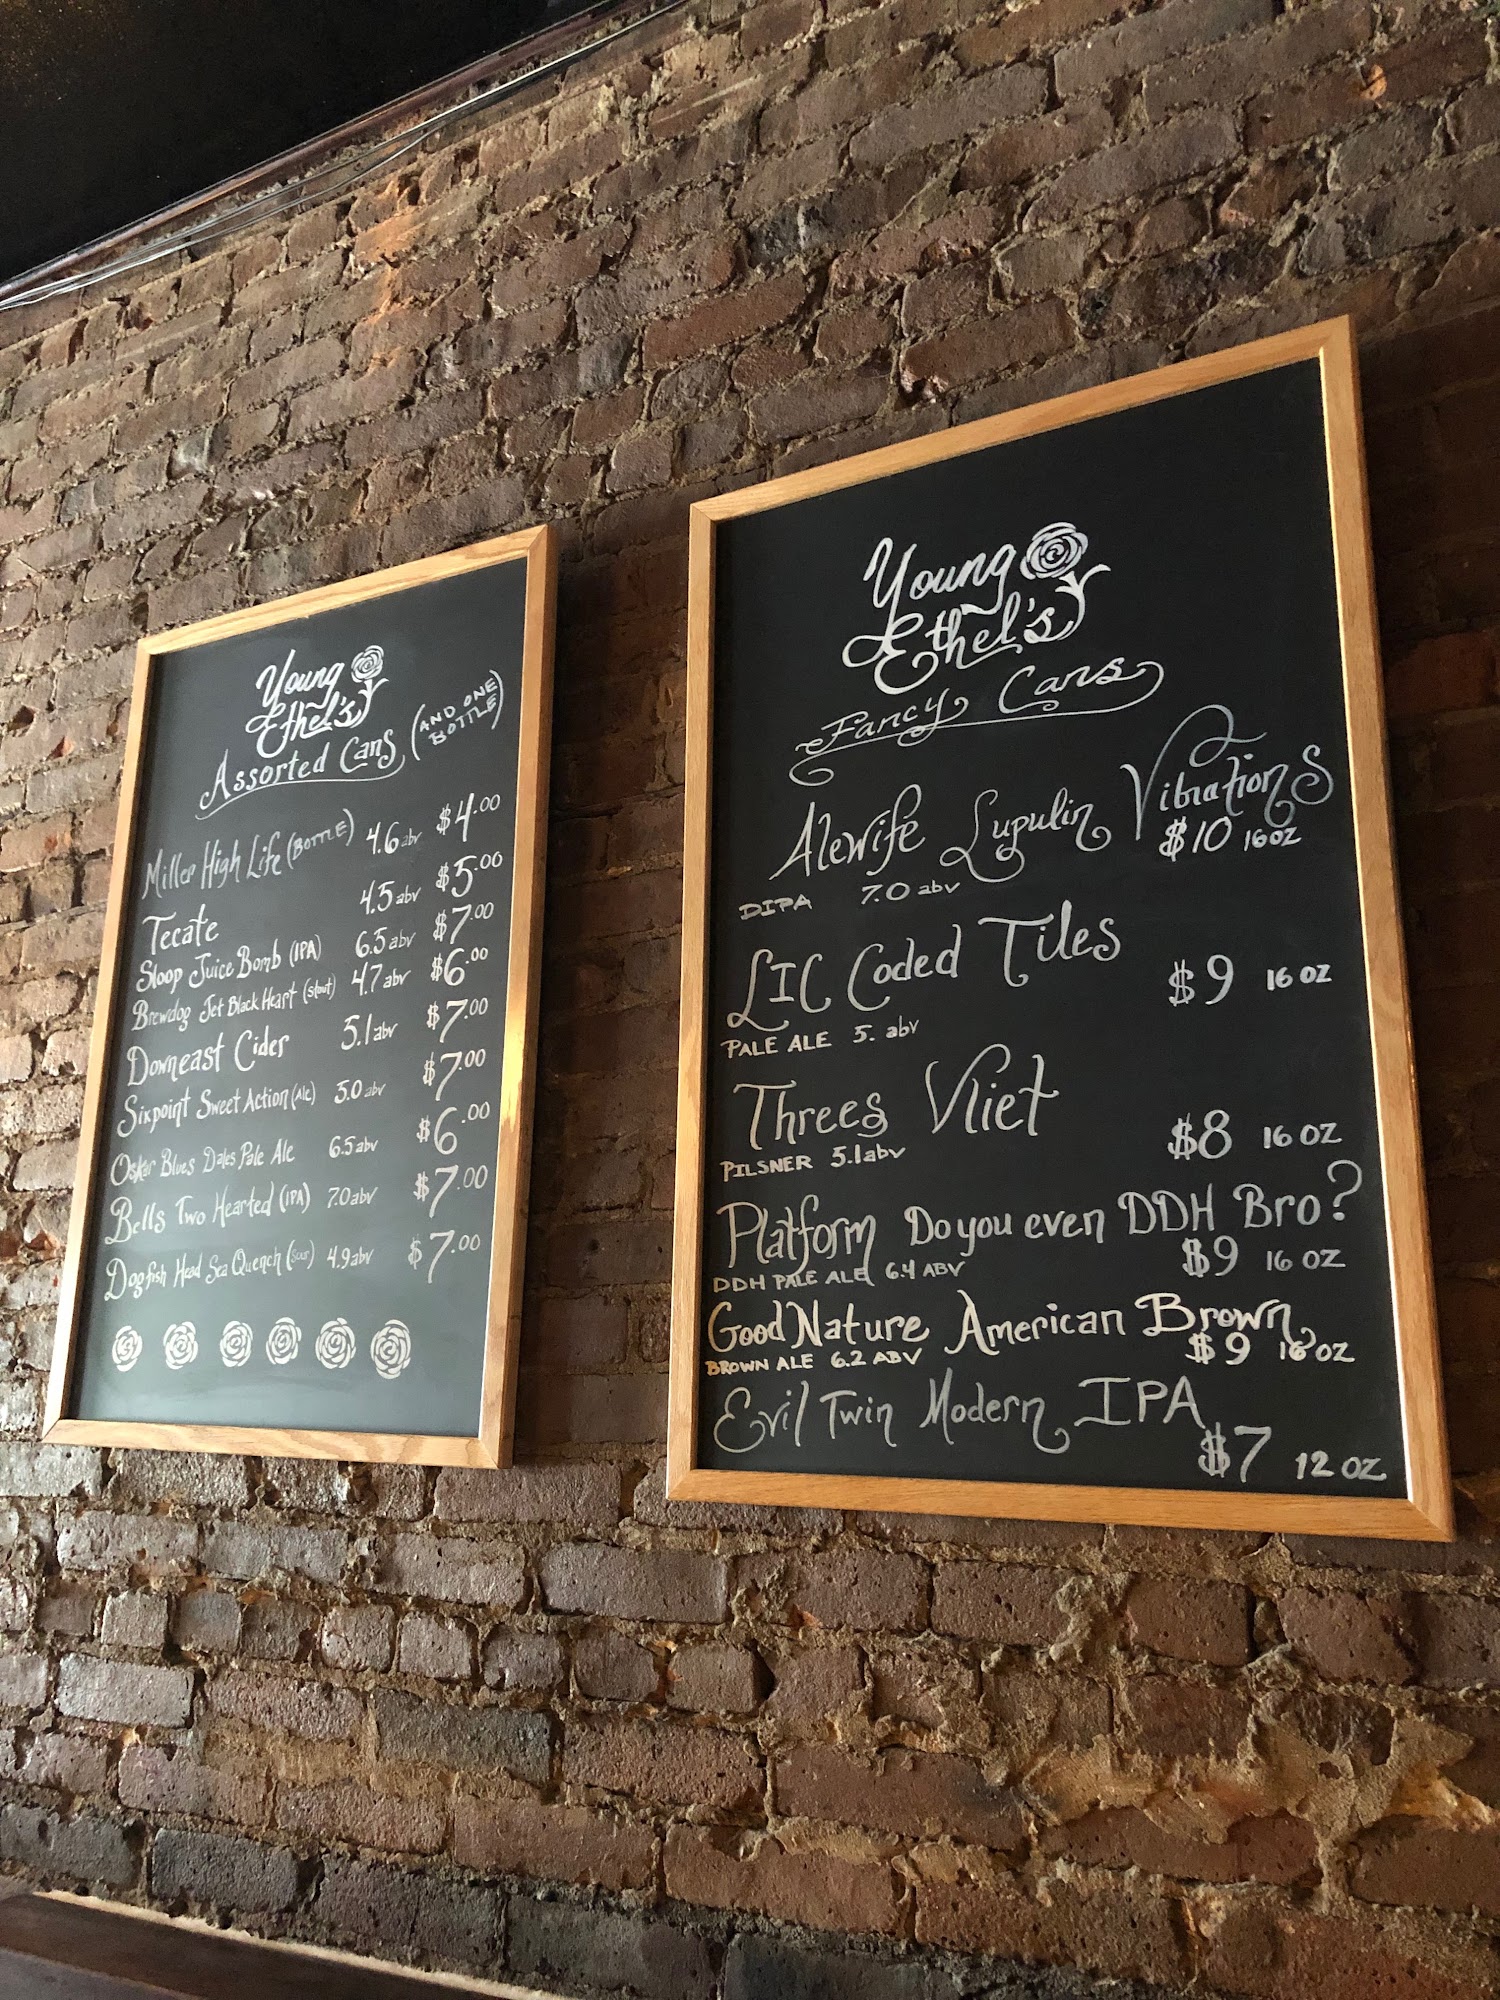 Young
Ethel's
Assorted Cans (AND ONE BOTTLE)
Miller High Life (BOTTLE) 4.6 abv $4.00
Tecate 4.5 abv $5.00
Sloop Juice Bomb (IPA) 6.5 abv $7.00
Brewdog Jet Black Heart (stout) 4.7 abv $6.00
Downeast Cider 5.1 abv $7.00
Sixpoint Sweet Action (Ale) 5.0 abv $7.00
Oskar Blues Dales Pale Ale 6.5 abv $6.00
Bells Two Hearted (IPA) 7.0 abv $7.00
Dogfish Head Sea Quench (Sour) 4.9 abv $7.00
Young
Ethel's
Fancy Cans
Alewife Lupulin Vibrations
DIPA 7.0 abv $10 16 OZ
LIC Coded Tiles
$9 16 OZ
PALE ALE 5. abv
Threes Vliet
$8 16 OZ
PILSNER 5.1 abv
Platform Do you even DDH Bro?
DDH PALE ALE 6.4 ABV $9 16 OZ
Good Nature American Brown
BROWN ALE 6.2 ABV $9 16 OZ
Evil Twin Modern IPA
$7 12 OZ